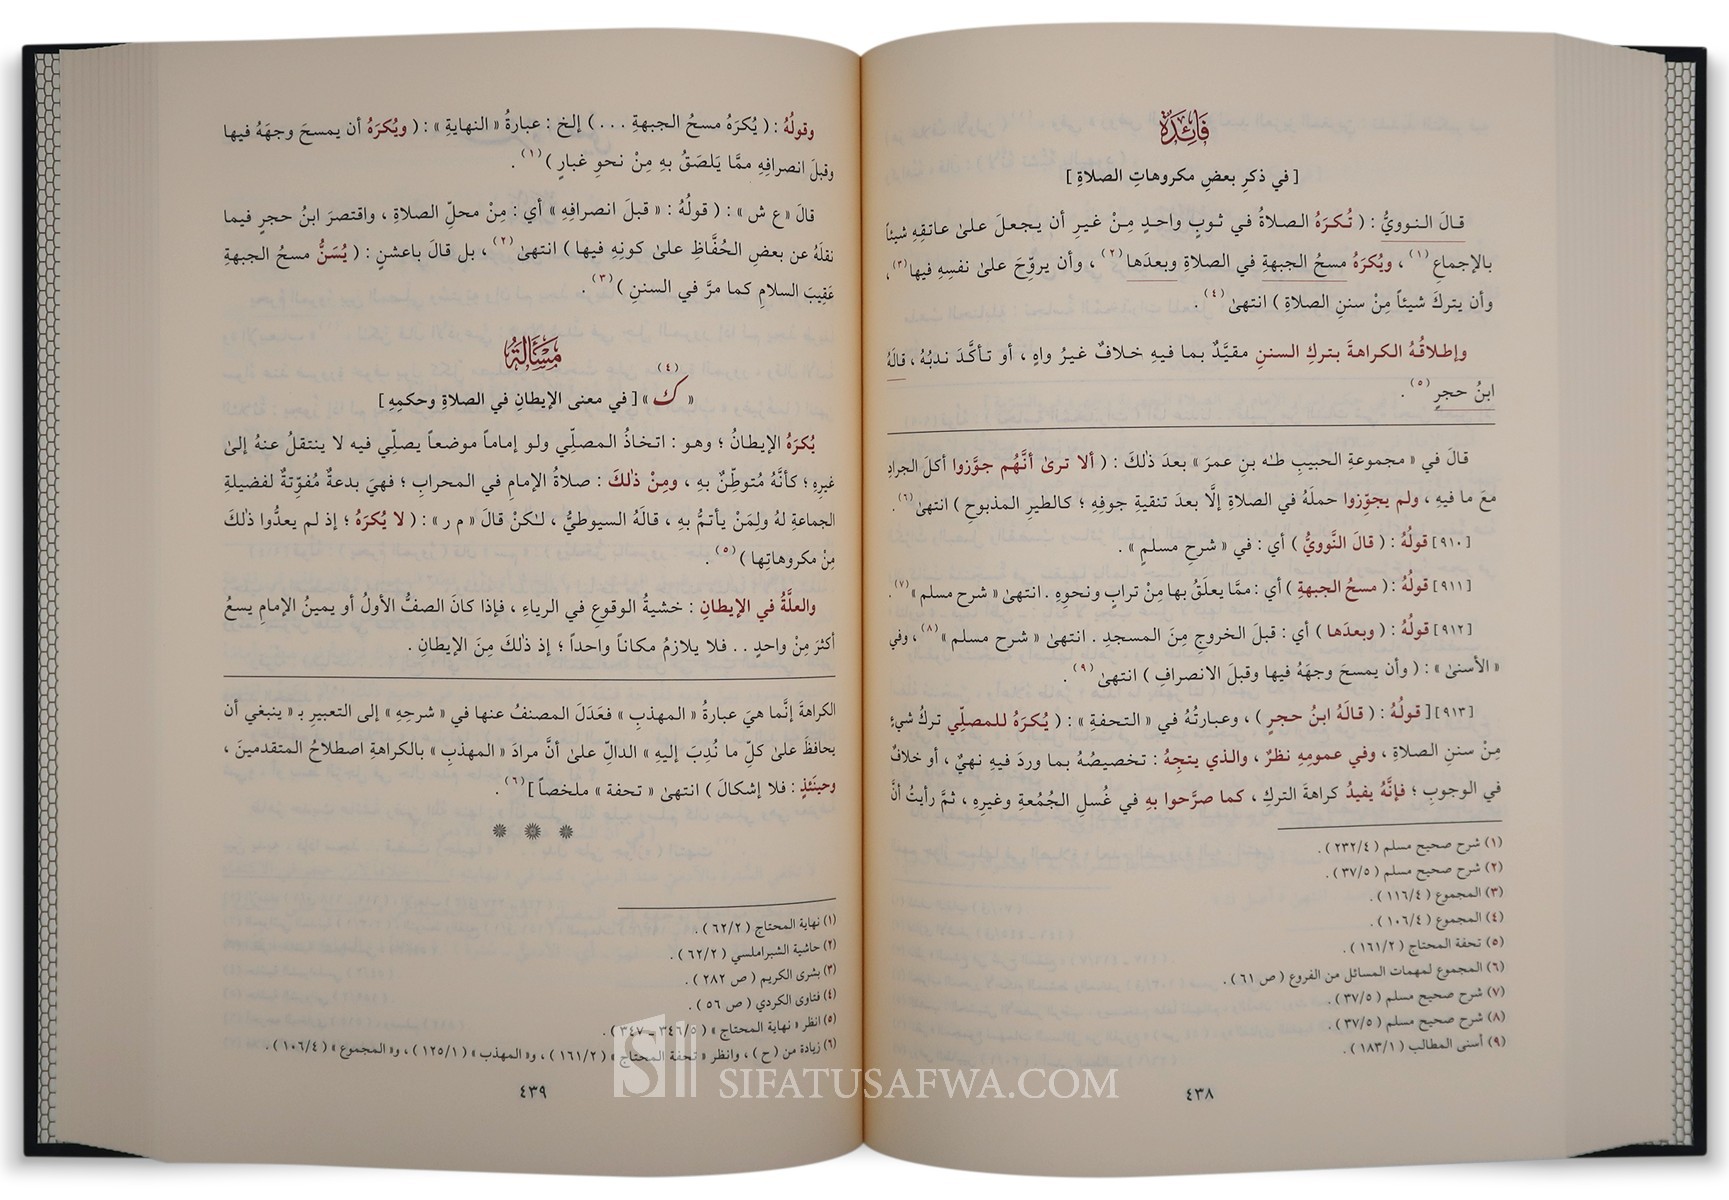 فَائِدَةٌ
[ في ذكرِ بعضِ مكروهاتِ الصلاةِ ]
قالَ النوويُّ : ( تُكرَهُ الصلاةُ في ثوبٍ واحدٍ مِنْ غيرِ أن يجعلَ علىٰ عاتقِهِ شيئاً
بالإجماعِ (١) ، ويُكرَهُ مسحُ الجبهةِ في الصلاةِ وبعدَها (٢) ، وأن يروِّحَ علىٰ نفسِهِ فيها (٣) ،
وأن يتركَ شيئاً مِنْ سننِ الصلاةِ ) انتهىٰ (٤) .
وإطلاقُهُ الكراهةَ بتركِ السننِ مقيَّدٌ بما فيهِ خلافٌ غيرُ واهٍ ، أو تأكَّدَ ندبُهُ ، قالَهُ
ابنُ حجرٍ (٥) .
قالَ في « مجموعةِ الحبيبِ طـٰه بنِ عمرَ » بعدَ ذٰلكَ : ( ألا ترىٰ أنَّهُم جوَّزوا أكلَ الجرادِ
معَ ما فيهِ ، ولم يجوِّزوا حملَهُ في الصلاةِ إلَّا بعدَ تنقيةِ جوفِهِ ؛ كالطيرِ المذبوحِ ) انتهىٰ (٦) .
[٩١٠] قولُهُ : ( قالَ النَّوويُّ ) أي : في « شرحِ مسلمٍ » .
[٩١١] قولُهُ : ( مسحُ الجبهةِ ) أي : ممَّا يعلَقُ بها مِنْ ترابٍ ونحوِهِ . انتهىٰ « شرح مسلم » (٧) .
[٩١٢] قولُهُ : ( وبعدَها ) أي : قبلَ الخروجِ مِنَ المسجدِ . انتهىٰ « شرح مسلم » (٨) ، وفي
« الأسنىٰ » : ( وأن يمسحَ وجهَهُ فيها وقبلَ الانصرافِ ) انتهىٰ (٩) .
[٩١٣] [ قولُهُ : ( قالَهُ ابنُ حجرٍ ) ، وعبارتُهُ في « التحفةِ » : ( يُكرَهُ للمصلِّي تركُ شيءٍ
مِنْ سننِ الصلاةِ ، وفي عمومِهِ نظرٌ ، والذي يتجِهُ : تخصيصُهُ بما وردَ فيهِ نهيٌ ، أو خلافٌ
في الوجوبِ ؛ فإنَّهُ يفيدُ كراهةَ التركِ ، كما صرَّحوا بهِ في غُسلِ الجُمُعةِ وغيرِهِ ، ثمَّ رأيتُ أنَّ
(١) شرح صحيح مسلم ( ٢٣٢/٤ ) .
(٢) شرح صحيح مسلم ( ٣٧/٥ ) .
(٣) المجموع ( ١١٦/٤ ) .
(٤) المجموع ( ١٠٦/٤ ) .
(٥) تحفة المحتاج ( ١٦١/٢ ) .
(٦) المجموع لمهمات المسائل من الفروع ( ص ٦١ ) .
(٧) شرح صحيح مسلم ( ٣٧/٥ ) .
(٨) شرح صحيح مسلم ( ٣٧/٥ ) .
(٩) أسنى المطالب ( ١٨٣/١ ) .
٤٣٨
وقولُهُ : ( يُكرَهُ مسحُ الجبهةِ . . . ) إلخ : عبارةُ « النهايةِ » : ( ويُكرَهُ أن يمسحَ وجهَهُ فيها
وقبلَ انصرافِهِ ممَّا يَلصَقُ بهِ مِنْ نحوِ غبارٍ ) (١) .
قالَ « ع ش » : ( قولُهُ : « قبلَ انصرافِهِ » أي : مِنْ محلِّ الصلاةِ ، واقتصرَ ابنُ حجرٍ فيما
نقلَهُ عن بعضِ الحُفَّاظِ علىٰ كونِهِ فيها ) انتهىٰ (٢) ، بل قالَ باعشنٍ : ( يُسَنُّ مسحُ الجبهةِ
عَقِيبَ السلامِ كما مرَّ في السننِ ) (٣) .
مَسْأَلَةٌ
« ك (٤) » [ في معنى الإيطانِ في الصلاةِ وحكمِهِ ]
يُكرَهُ الإيطانُ ؛ وهو : اتخاذُ المصلِّي ولو إماماً موضعاً يصلِّي فيه لا ينتقلُ عنهُ إلىٰ
غيرِهِ ؛ كأنَّهُ مُتوطِّنٌ بهِ ، ومِنْ ذٰلكَ : صلاةُ الإمامِ في المحرابِ ؛ فهيَ بدعةٌ مُفوِّتةٌ لفضيلةِ
الجماعةِ لهُ ولِمَنْ يأتمُّ بهِ ، قالَهُ السيوطيُّ ، لـٰكنْ قالَ « م ر » : ( لا يُكرَهُ ؛ إذ لم يعدُّوا ذٰلكَ
مِنْ مكروهاتِها ) (٥) .
والعلَّةُ في الإيطانِ : خشيةُ الوقوعِ في الرياءِ ، فإذا كانَ الصفُّ الأولُ أو يمينُ الإمامِ يسعُ
أكثرَ مِنْ واحدٍ . . فلا يلازمُ مكاناً واحداً ؛ إذ ذٰلكَ مِنَ الإيطانِ .
الكراهةَ إنَّما هيَ عبارةُ « المهذبِ » فعَدَلَ المصنفُ عنها في « شرحِهِ » إلى التعبيرِ بـ « ينبغي أن
يحافظَ علىٰ كلِّ ما نُدِبَ إليهِ » الدالِّ علىٰ أنَّ مرادَ « المهذبِ » بالكراهةِ اصطلاحُ المتقدمينَ ،
وحينَئذٍ : فلا إشكالَ ) انتهىٰ « تحفة » ملخصاً ] (٦) .
(١) نهاية المحتاج ( ٦٢/٢ ) .
(٢) حاشية الشبراملسي ( ٦٢/٢ ) .
(٣) بشرى الكريم ( ص ٢٨٢ ) .
(٤) فتاوى الكردي ( ص ٥٦ ) .
(٥) انظر « نهاية المحتاج » ( ٣٤٦/٥ ـ ٣٤٧ ) .
(٦) زيادة من ( ح ) ، وانظر « تحفة المحتاج » ( ١٦١/٢ ) ، و« المهذب » ( ١٢٥/١ ) ، و« المجموع » ( ١٠٦/٤ ) .
٤٣٩
SIFATUSAFWA.COM